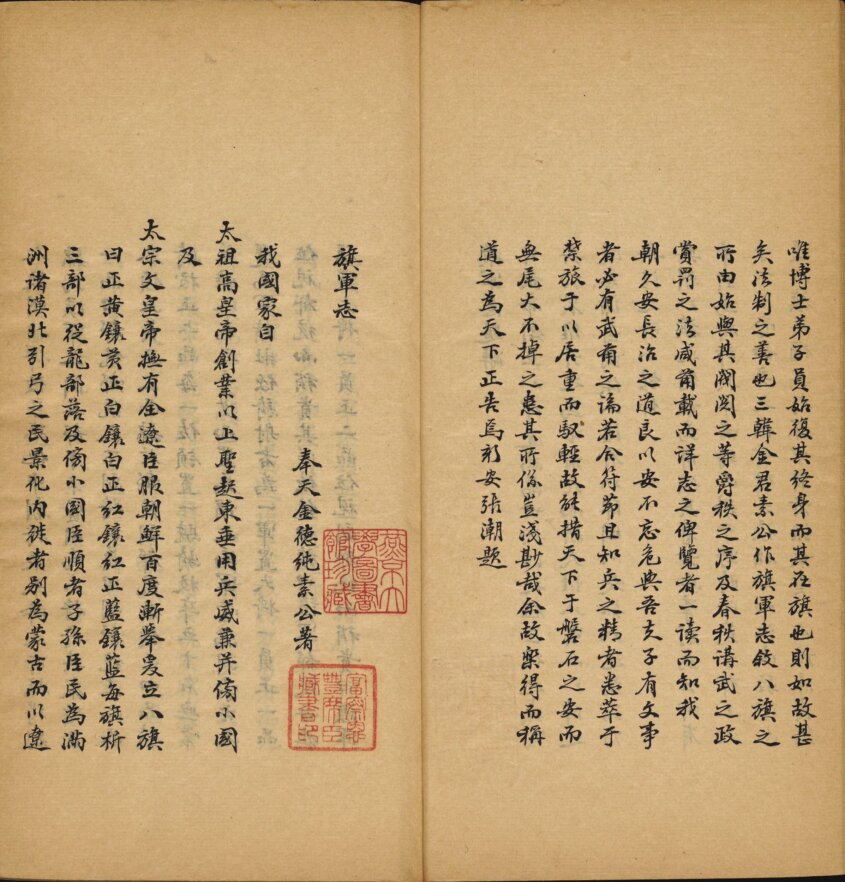 唯博士弟子員始復其終身而其在旗也則如故甚
矣法制之善也三韓金君素公作旗軍志敘八旗之
所由始與其閥閱之等爵秩之序及春秋講武之政
賞罰之法咸簡載而詳志之俾覽者一讀而知我
朝久安長治之道良以安不忘危與吾夫子有文事
者必有武备之論若合符節且知兵之精者悉萃于
禁旅于以居重而馭輕故能措天下于磐石之安而
無尾大不掉之患其所係豈淺尠哉余故樂得而稱
道之為天下正告焉新安張潮題
旗軍志
奉天金德純素公著
我國家自
太祖高皇帝創業以上聖起東垂用兵威兼并傍小國
及
太宗文皇帝撫有全遼臣服朝鮮百度漸舉爰立八旗
曰正黃鑲黃正白鑲白正紅鑲紅正藍鑲藍每旗析
三部以從龍部落及傍小國臣順者子孫臣民為滿
洲諸漠北引弓之民景化內徙者別為蒙古而以遼
燕京大學圖書館珍藏